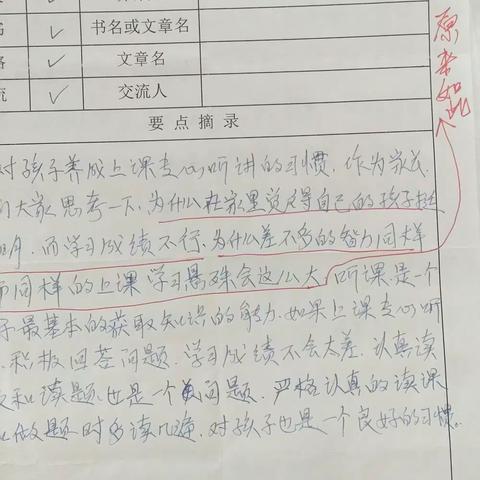 书名或文章名
文章名
交流人
要点摘录
原来如此
对孩子养成上课专心听讲的习惯,作为家长,
们大家思考一下,为什么在家里觉得自己的孩子挺
明,而学习成绩不行,为什么差不多的智力同样
而同样的上课学习悬殊会这么大,听课是一个
最基本的获取知识的能力,如果上课专心听
积极回答问题,学习成绩不会太差,认真读
和读题,也是一个问题,严格认真的读课
做题时多读几遍,对孩子也是一个良好的习惯。